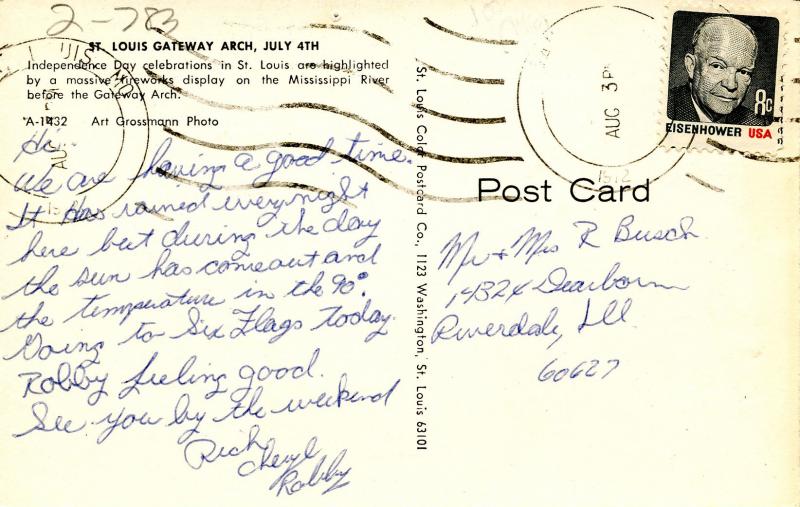 2-783
ST. LOUIS GATEWAY ARCH, JULY 4TH
Independence Day celebrations in St. Louis are highlighted
by a massive fireworks display on the Mississippi River
before the Gateway Arch.
A-1432 Art Grossmann Photo
Hi
We are having a good time.
It has rained every night
here but during the day
the sun has come out and
the temperature in the 90°.
Going to Six Flags today.
Robby feeling good.
See you by the weekend
Rich
Cheryl
Robby
St. Louis Color Postcard Co., 1123 Washington, St. Louis 63101
AUG 3 PM
1972
8c
EISENHOWER USA
Post Card
Mr + Mrs R Busch
14324 Dearborn
Riverdale, Ill
60627